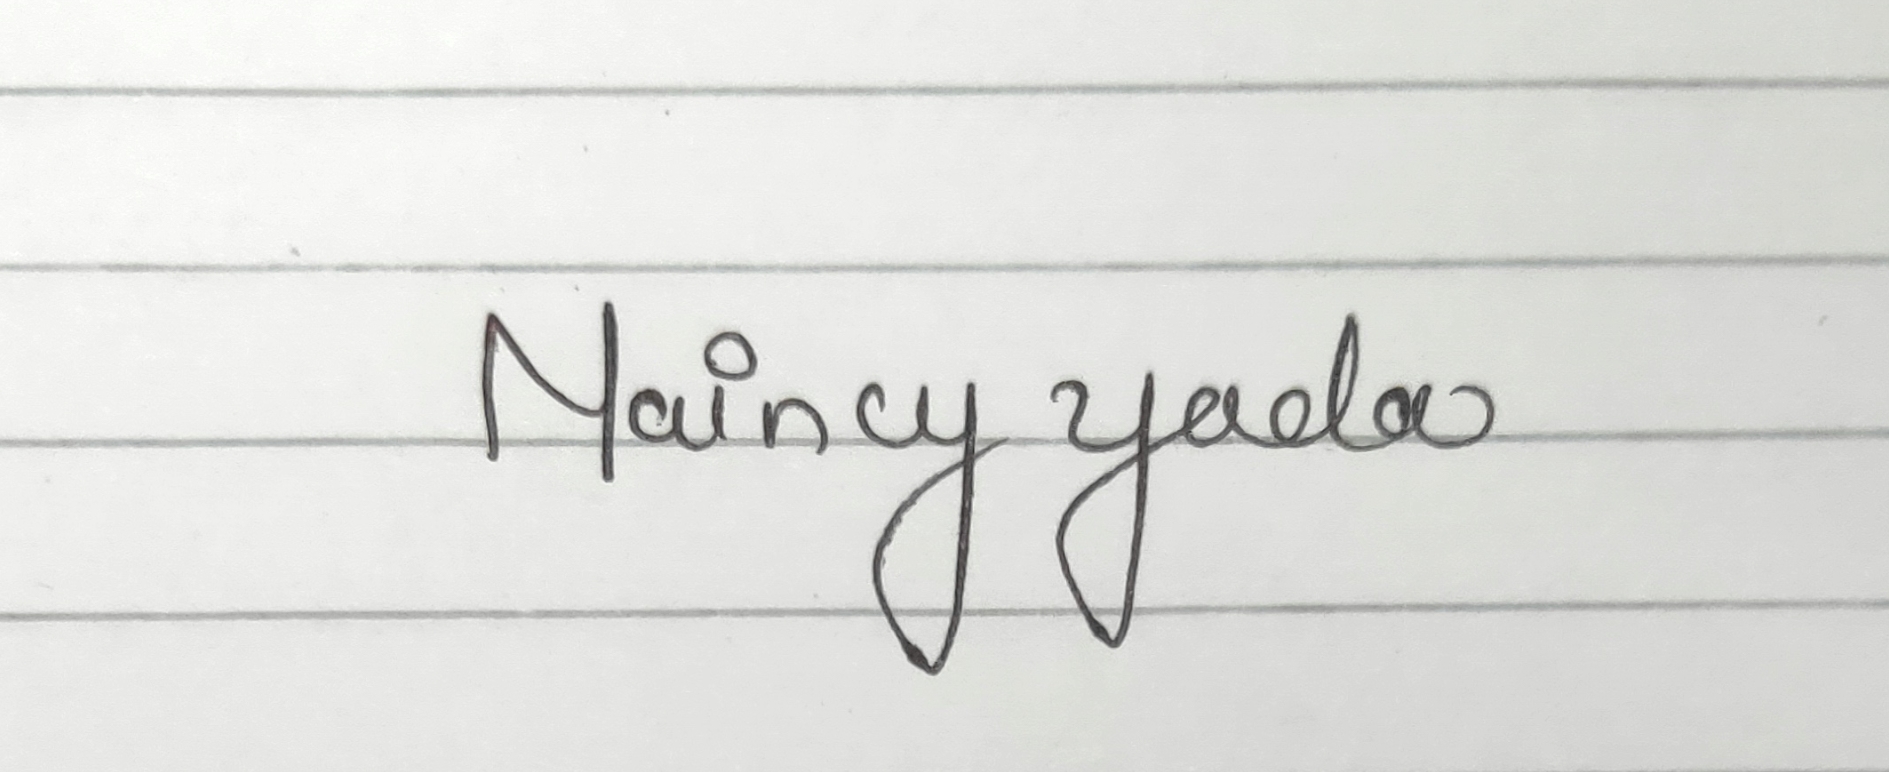 Naincy yadav